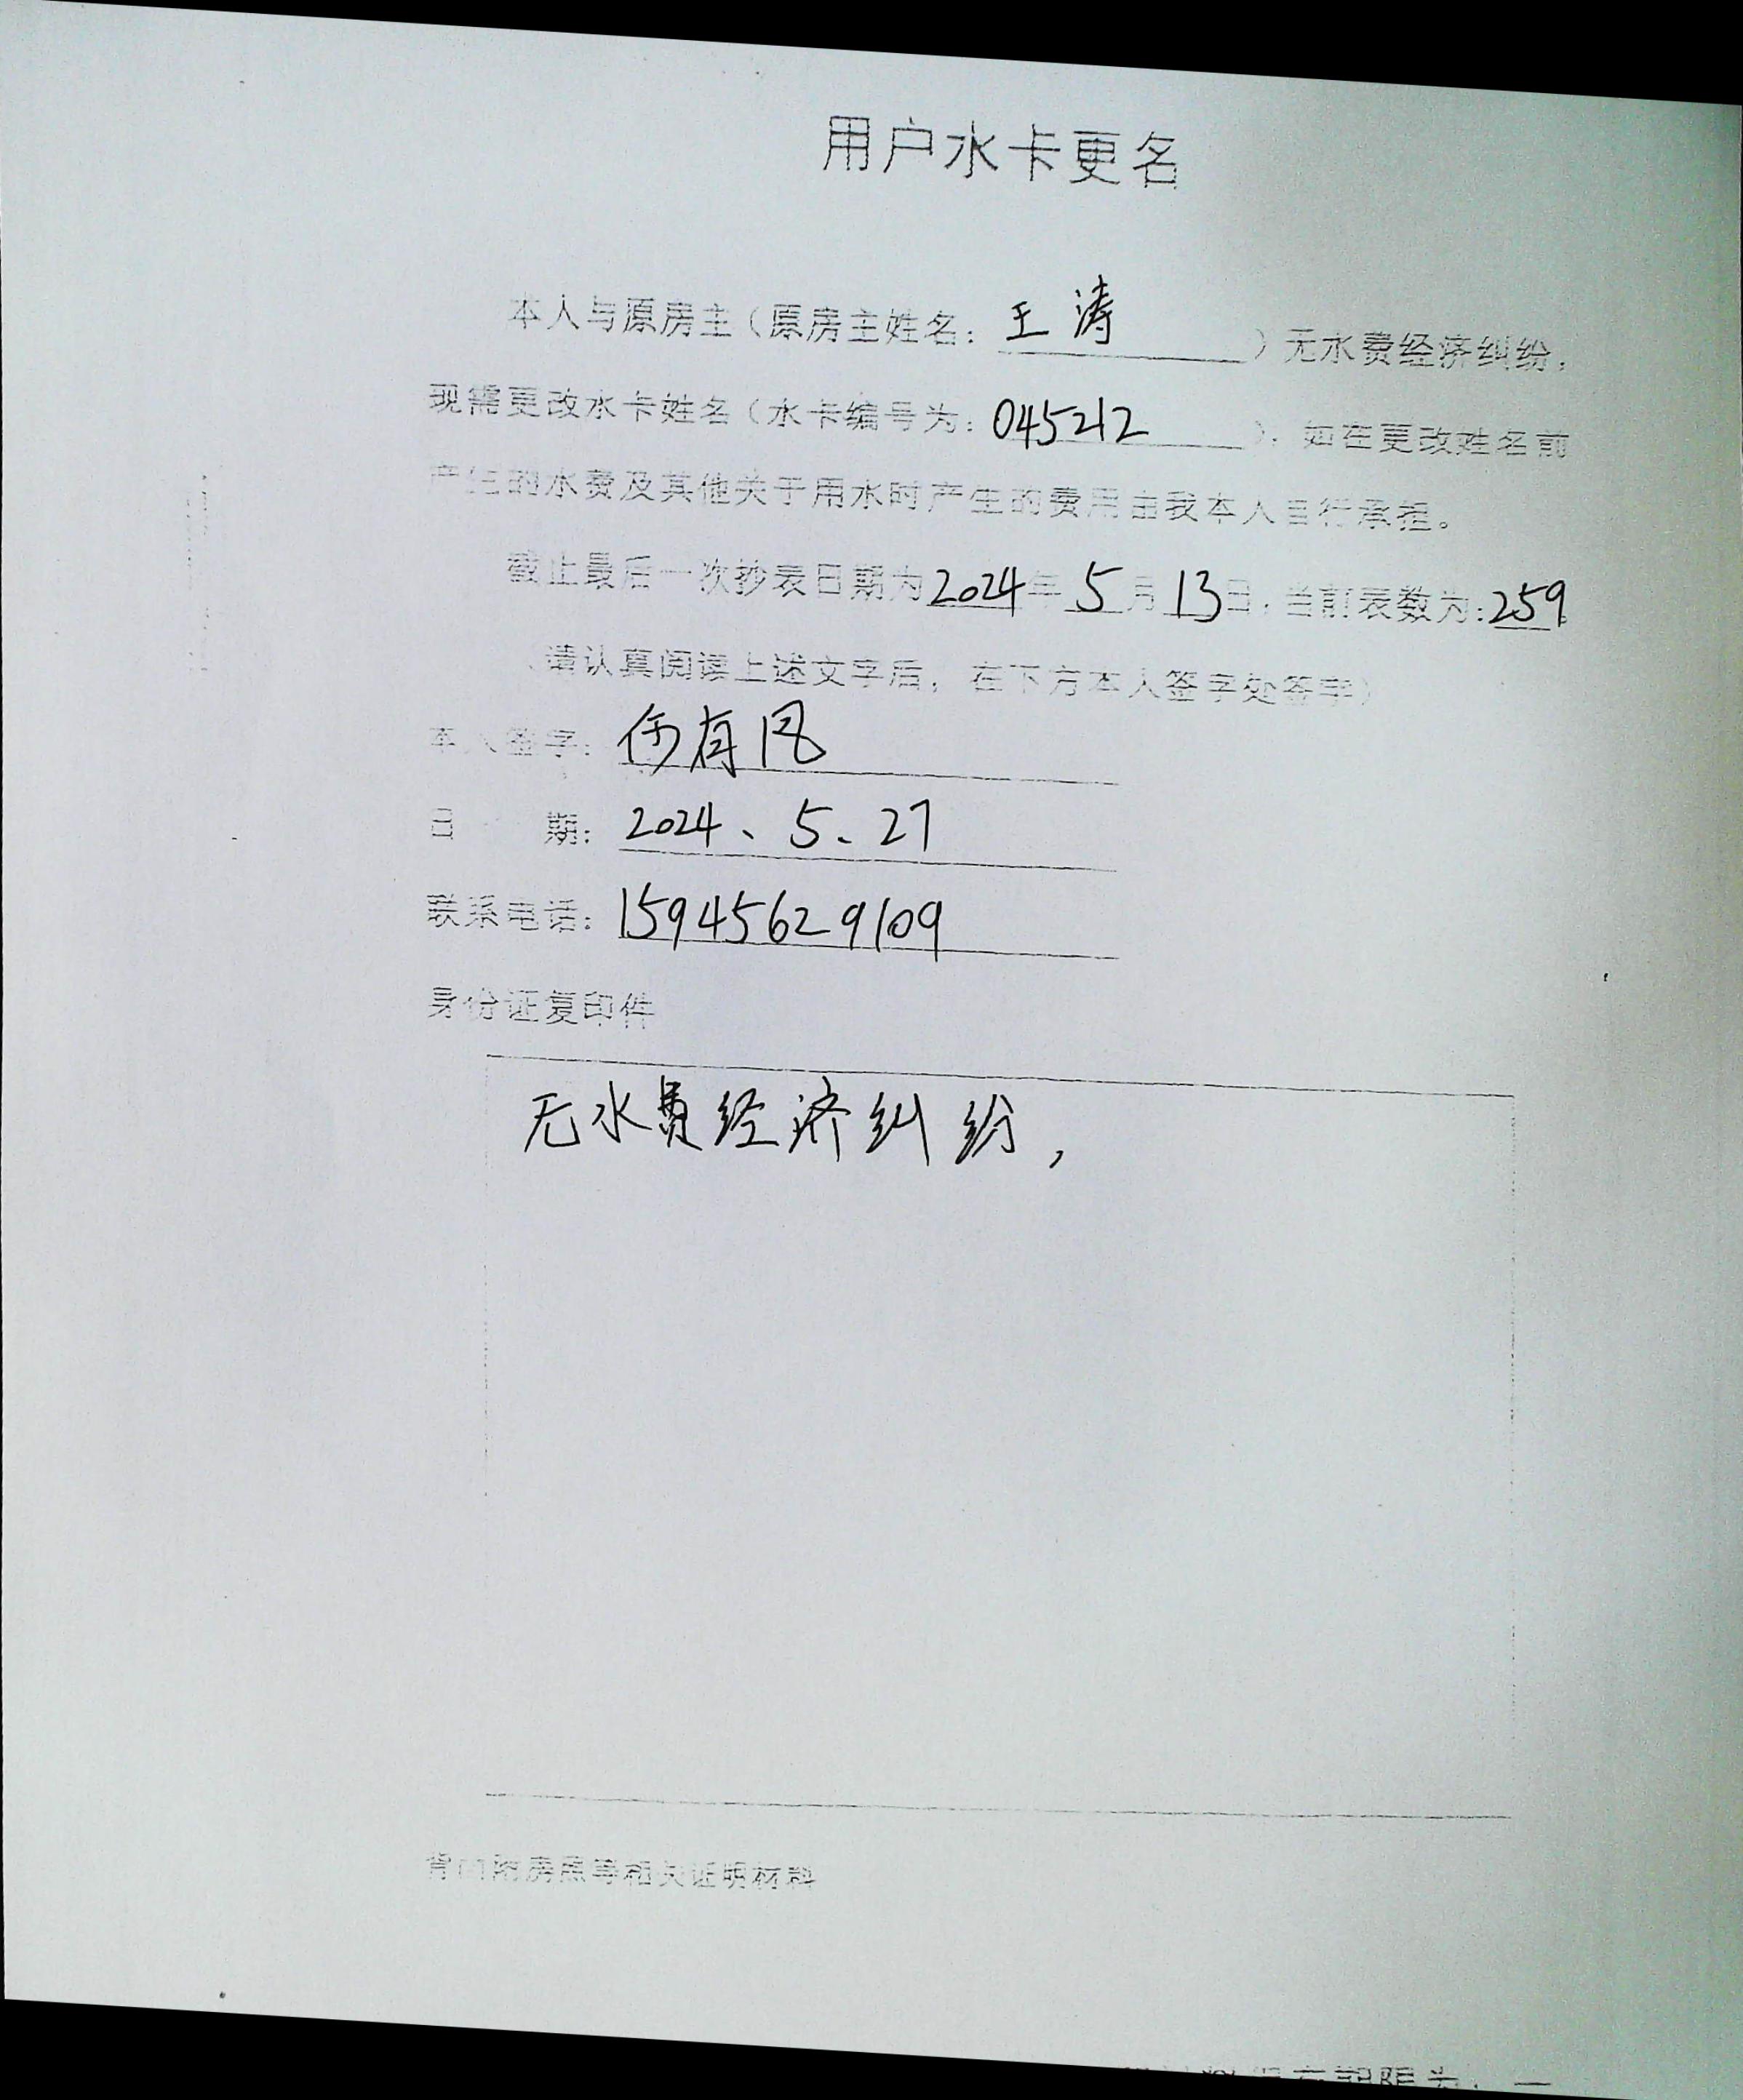 用户水卡更名
本人与原房主（原房主姓名：王涛）无水费经济纠纷，
现需更改水卡姓名（水卡编号为：045212），如在更改姓名前
产生的水费及其他关于用水时产生的费用由我本人自行承担。
截止最后一次抄表日期为2024年5月13日，当前表数为：259。
（请认真阅读上述文字后，在下方本人签字处签字）
本人签字：何有凤
日期：2024、5、27
联系电话：15945629109
身份证复印件
无水费经济纠纷，
背面附房照等相关证明材料